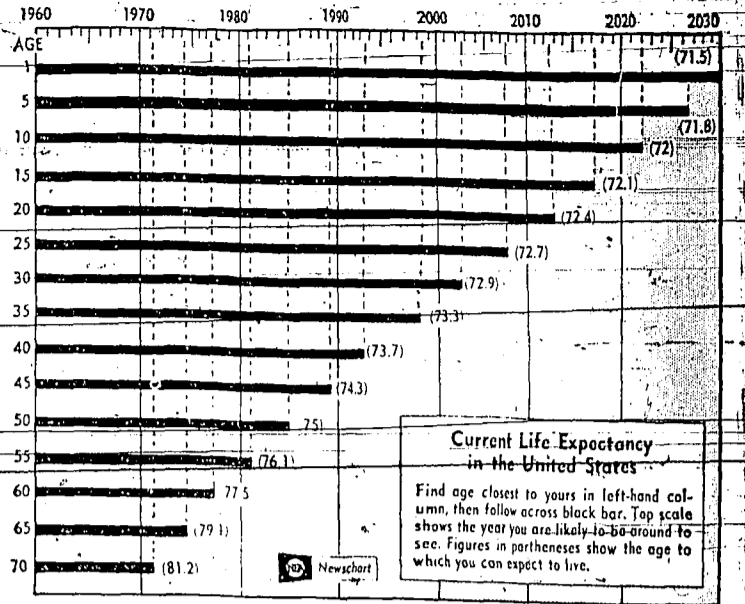 1960 1970 1980 1990 2000 2010 2020 2030
AGE
1 (71.5)
5 (71.8)
10 (72)
15 (72.1)
20 (72.4)
25 (72.7)
30 (72.9)
35 (73.3)
40 (73.7)
45 (74.3)
50 75)
55 (76.1)
60 77.5
65 (79.1)
70 (81.2)
Current Life Expectancy
in the United States
Find age closest to yours in left-hand col-
umn, then follow across black bar. Top scale
shows the year you are likely to be around to
see. Figures in partheneses show the age to
which you can expect to live.
Newschart